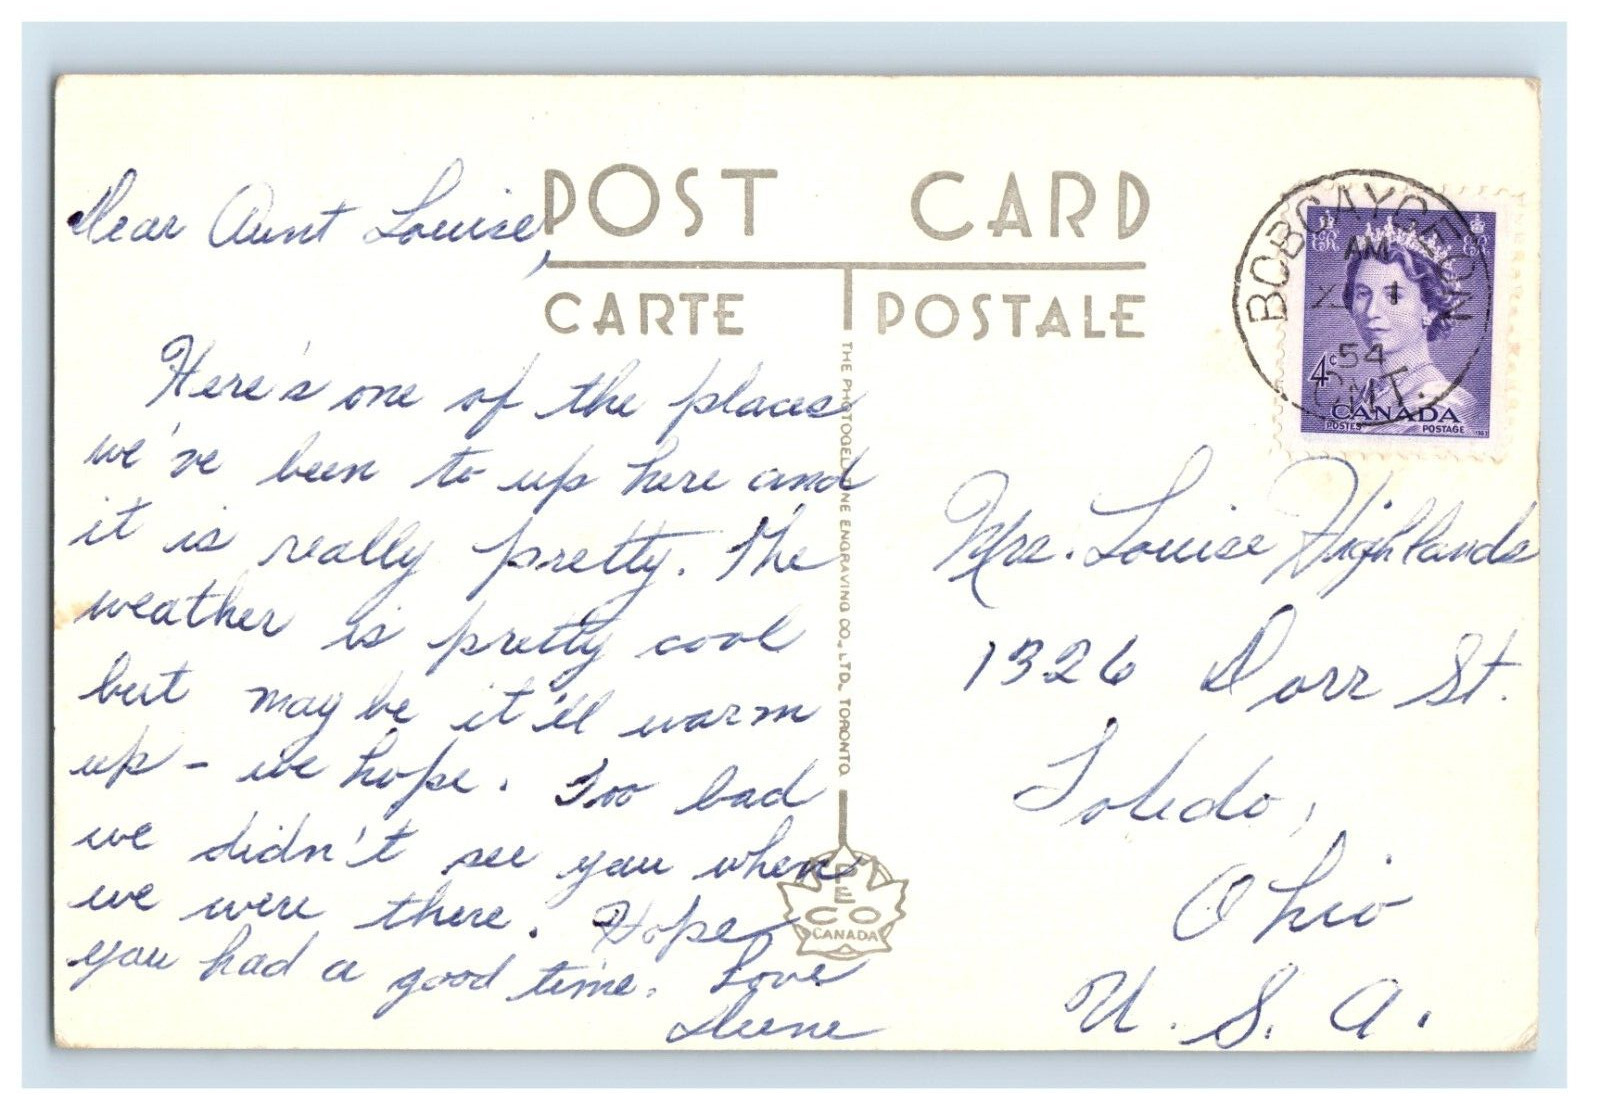 POST CARD
CARTE POSTALE
Dear Aunt Louise,
Here's one of the places
we've been to up here and
it is really pretty. The
weather is pretty cool
but maybe it'll warm
up - we hope. Too bad
we didn't see you when
we were there. Hope
you had a good time. Love
THE PHOTOGELATINE ENGRAVING CO., LTD. TORONTO
PECO
CANADA
BOBCAYGEON
AM
1
54
ONT.
4c
CANADA
POSTES POSTAGE
Mrs. Louise Highlands
1326 Dorr St.
Toledo,
Ohio
U. S. A.